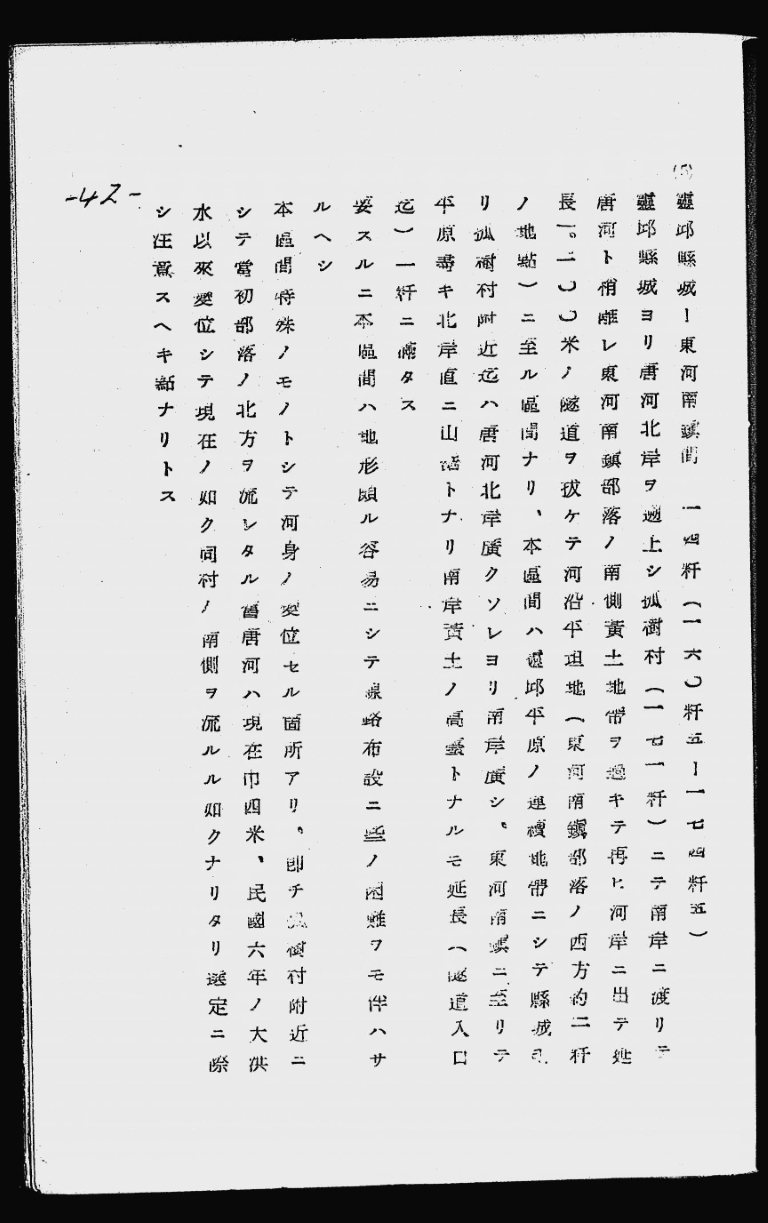 (5)
靈邱縣城ー東河南鎭間 一四粁(一六〇粁五ー一七四粁五)
靈邱縣城ヨリ唐河北岸ヲ遡上シ孤樹村(一七一粁)ニテ南岸ニ渡リテ
唐河ト稍離レ東河南鎭部落ノ南側黃土地帶ヲ過キテ再ヒ河岸ニ出テ延
長一。二〇〇米ノ隧道ヲ拔ケテ河沿平坦地(東河南鎭部落ノ西方約二粁
ノ地點)ニ至ル區間ナリ、本區間ハ靈邱平原ノ連續地帶ニシテ縣城ヨ
リ孤樹村附近迄ハ唐河北岸廣クソレヨリ南岸廣シ、東河南鎭ニ至リテ
平原尋キ北岸直ニ山岳トナリ南岸黃土ノ高臺トナルモ延長(隧道入口
迄)一粁ニ滿タス
要スルニ本區間ハ地形頗ル容易ニシテ線路布設ニ些ノ困難ヲモ伴ハサ
ルヘシ
本區間特殊ノモノトシテ河身ノ變位セル箇所アリ、卽チ孤樹村附近ニ
シテ當初部落ノ北方ヲ流レタル舊唐河ハ現在巾四米、民國六年ノ大洪
水以來變位シテ現在ノ如ク同村ノ南側ヲ流ルル如クナリタリ選定ニ際
シ注意スヘキ點ナリトス
-42-